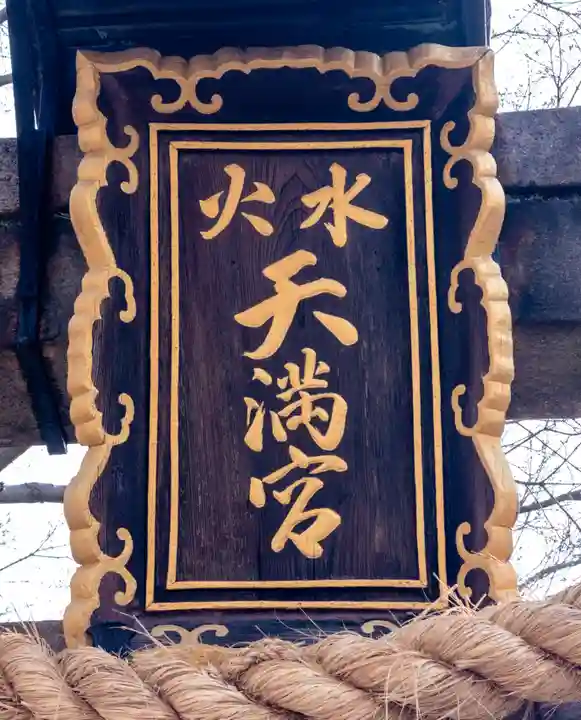 水火
天満宮